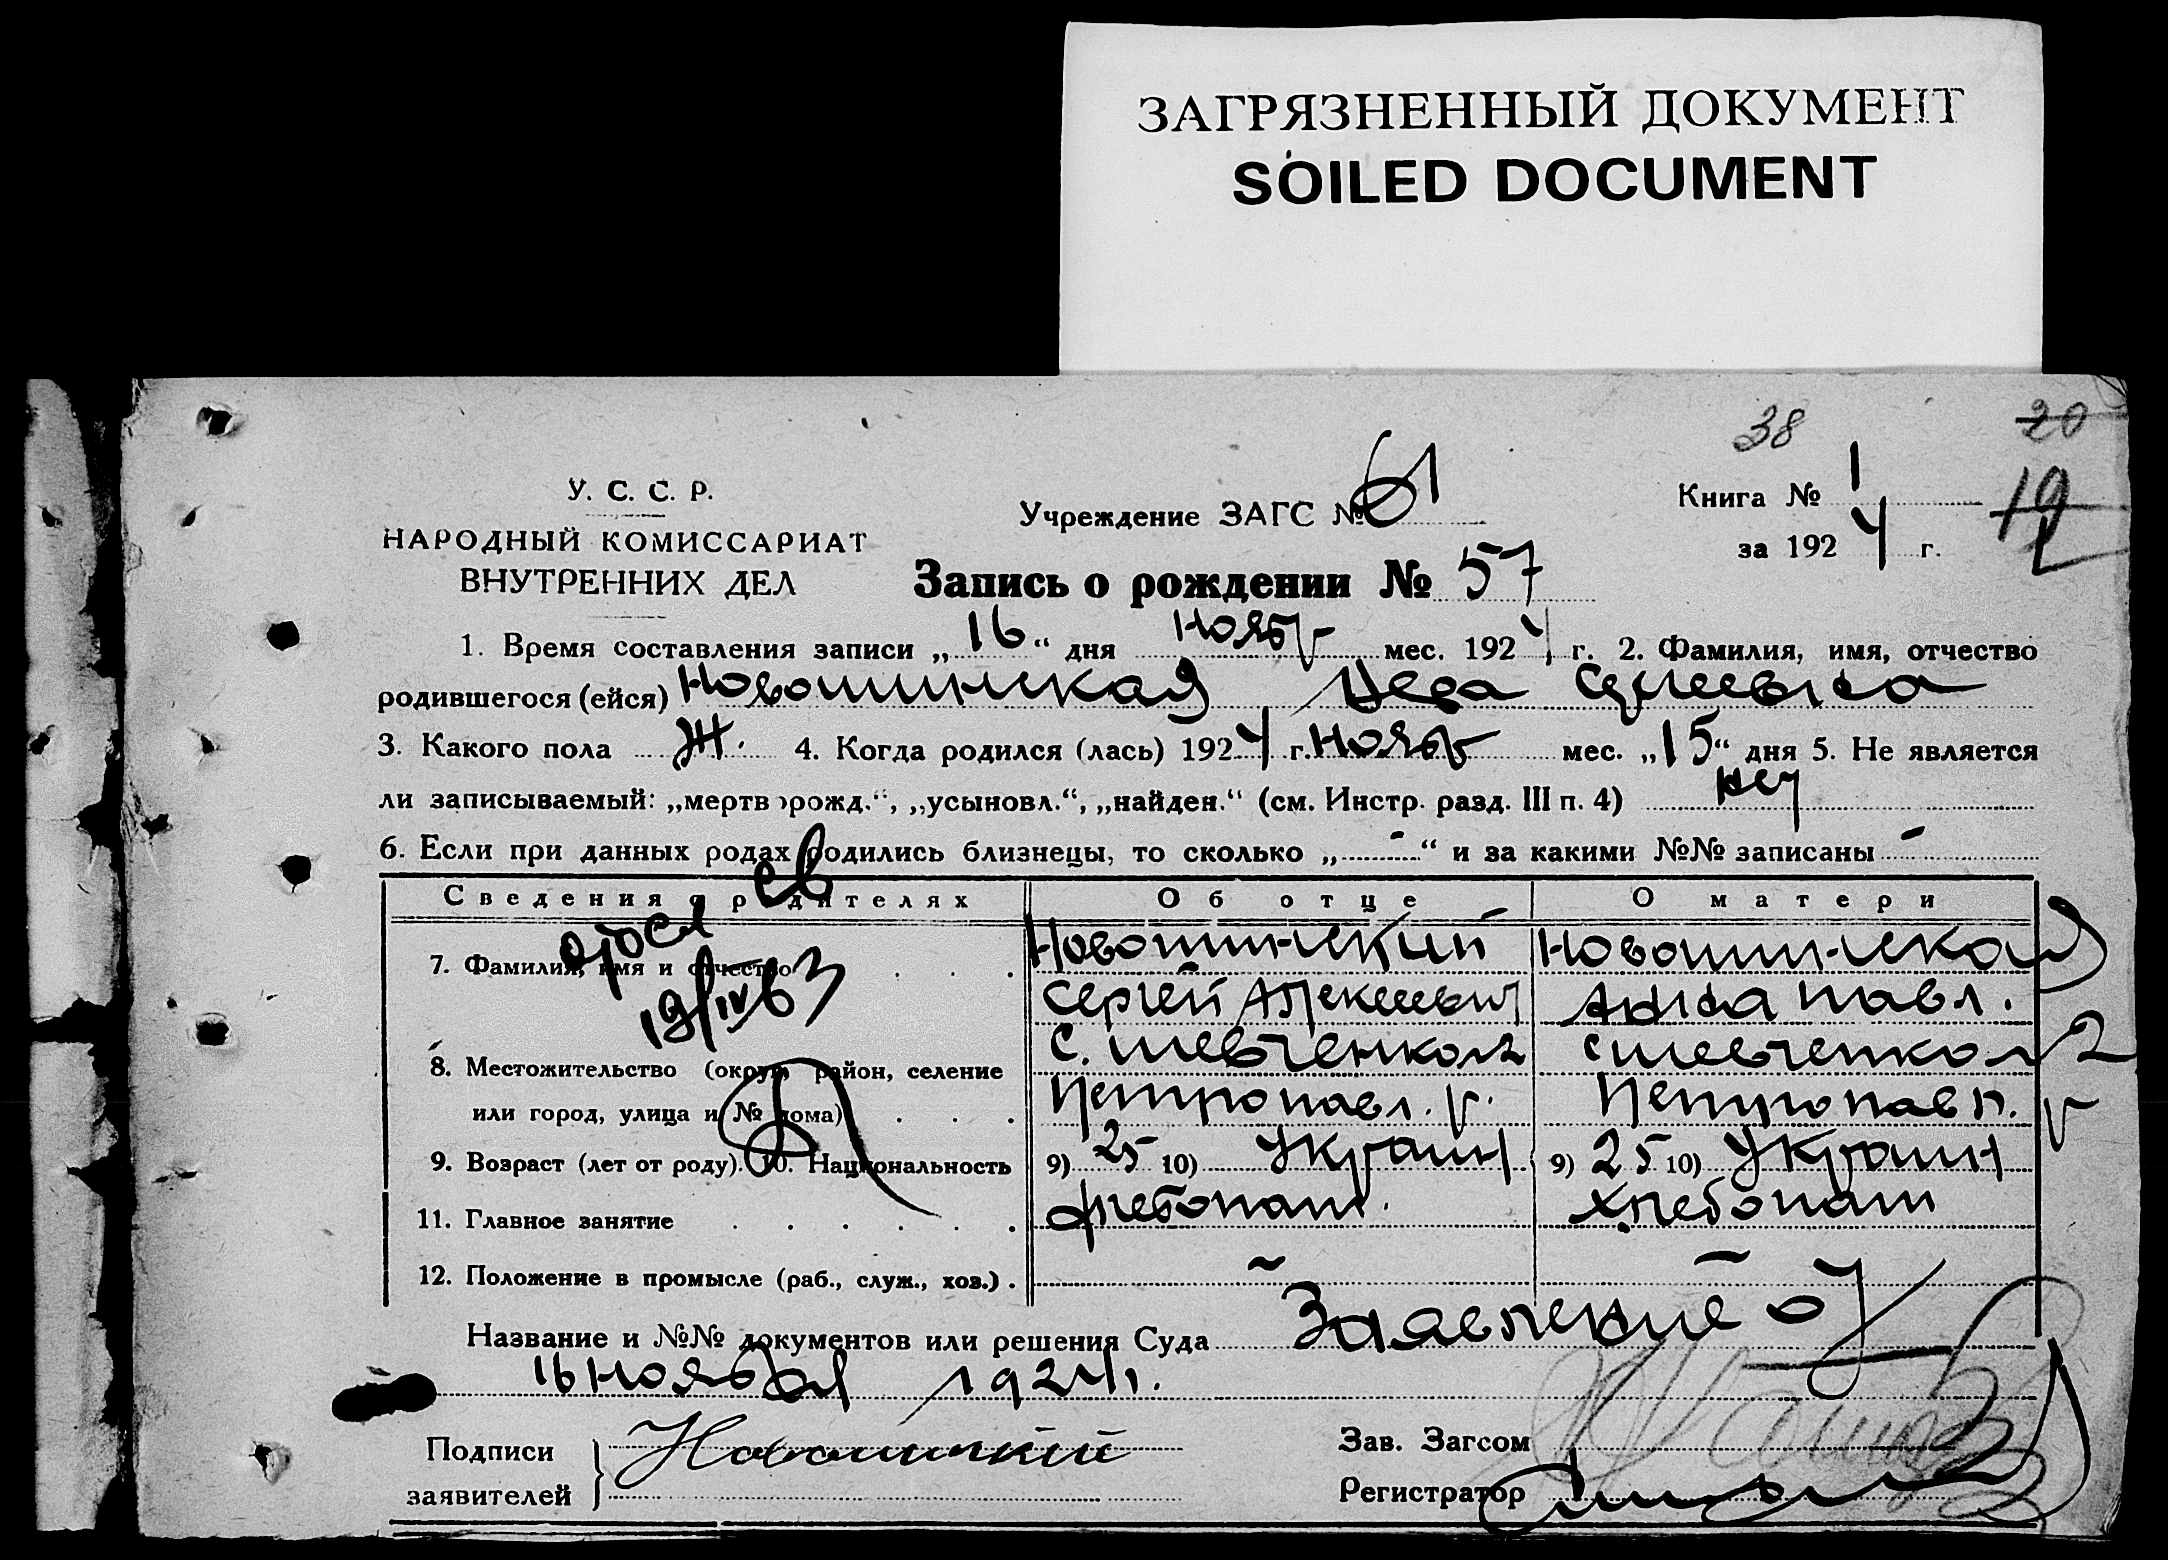 ЗАГРЯЗНЕННЫЙ ДОКУМЕНТ
SOILED DOCUMENT
38
20
19
У. С. С. Р.
НАРОДНЫЙ КОМИССАРИАТ
ВНУТРЕННИХ ДЕЛ
Учреждение ЗАГС № 61
Книга № 1
за 1924 г.
Запись о рождении № 57
1. Время составления записи „16“ дня нояб мес. 1924 г. 2. Фамилия, имя, отчество
родившегося (ейся) Новошинская Сергеевна
3. Какого пола Ж. 4. Когда родился (лась) 1924 г. нояб мес. „15“ дня 5. Не является
ли записываемый: „мертворожд.“, „усыновл.“, „найден.“ (см. Инстр. разд. III п. 4) нет
6. Если при данных родах родились близнецы, то сколько „-“ и за какими №№ записаны -
Сведения о родителях Об отце О матери
7. Фамилия, имя и отчество Новошинский Новошинская
Сергей Алексеевич Анна Павл.
19/IV 63
8. Местожительство (округ, район, селение с. Шевченко с Шевченко
или город, улица и № дома) Петропавл. р. Петропавл. р
9. Возраст (лет от роду). 10. Национальность 9) 25 10) Украин 9) 25 10) Украин
11. Главное занятие хлебопаш. хлебопаш
12. Положение в промысле (раб., служ., хоз.) . - -
Название и №№ документов или решения Суда Заявление от
16 ноября 1924 г.
Подписи
заявителей
Новошинский
Зав. Загсом
Регистратор